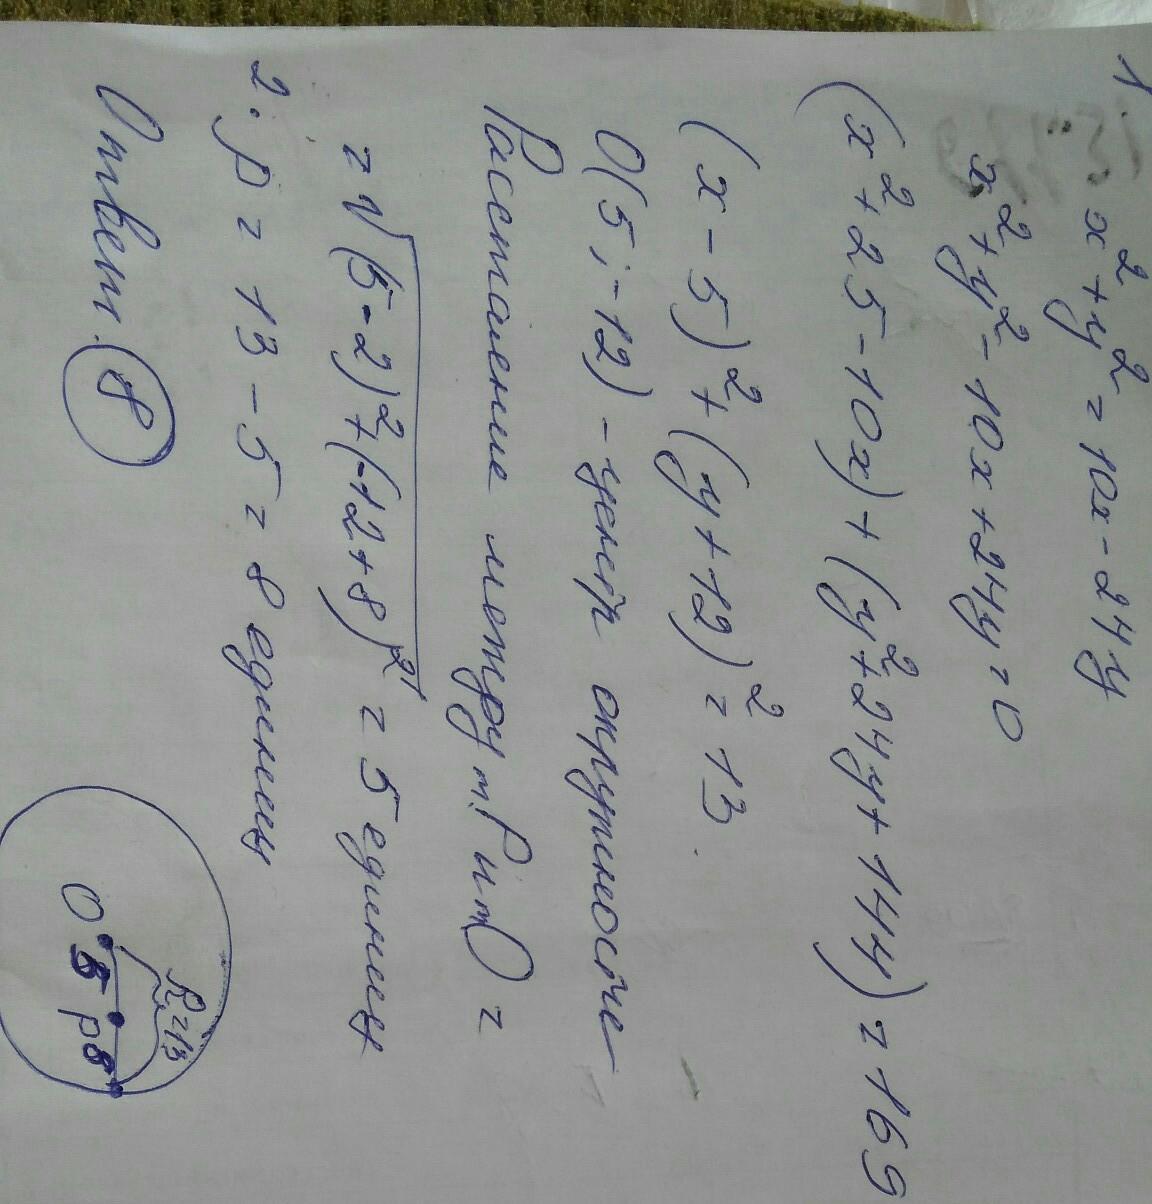 1. x² + y² = 10x - 24y
x² + y² - 10x + 24y = 0
(x² + 25 - 10x) + (y² + 24y + 144) = 169
(x - 5)² + (y + 12)² = 13.
O(5; -12) - центр окружности
Расстояние между т.P и тO =
= √(5-2)² + (-12+8)² = 5 единиц
2. p = 13 - 5 = 8 единиц
Ответ. 8
R=13
O 5 p 8